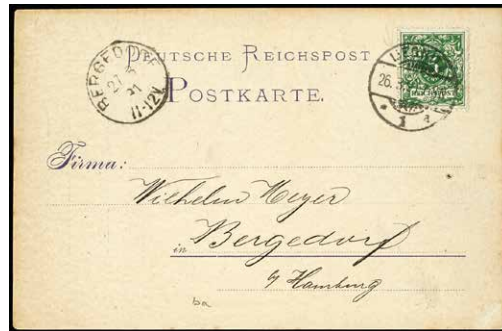 DEUTSCHE REICHSPOST
POSTKARTE.
BERGEDORF
27 3
91
11-12V.
26.3
1 a
Firma:
Wilhelm Meyer
in Bergedorf
b/ Hamburg
ba